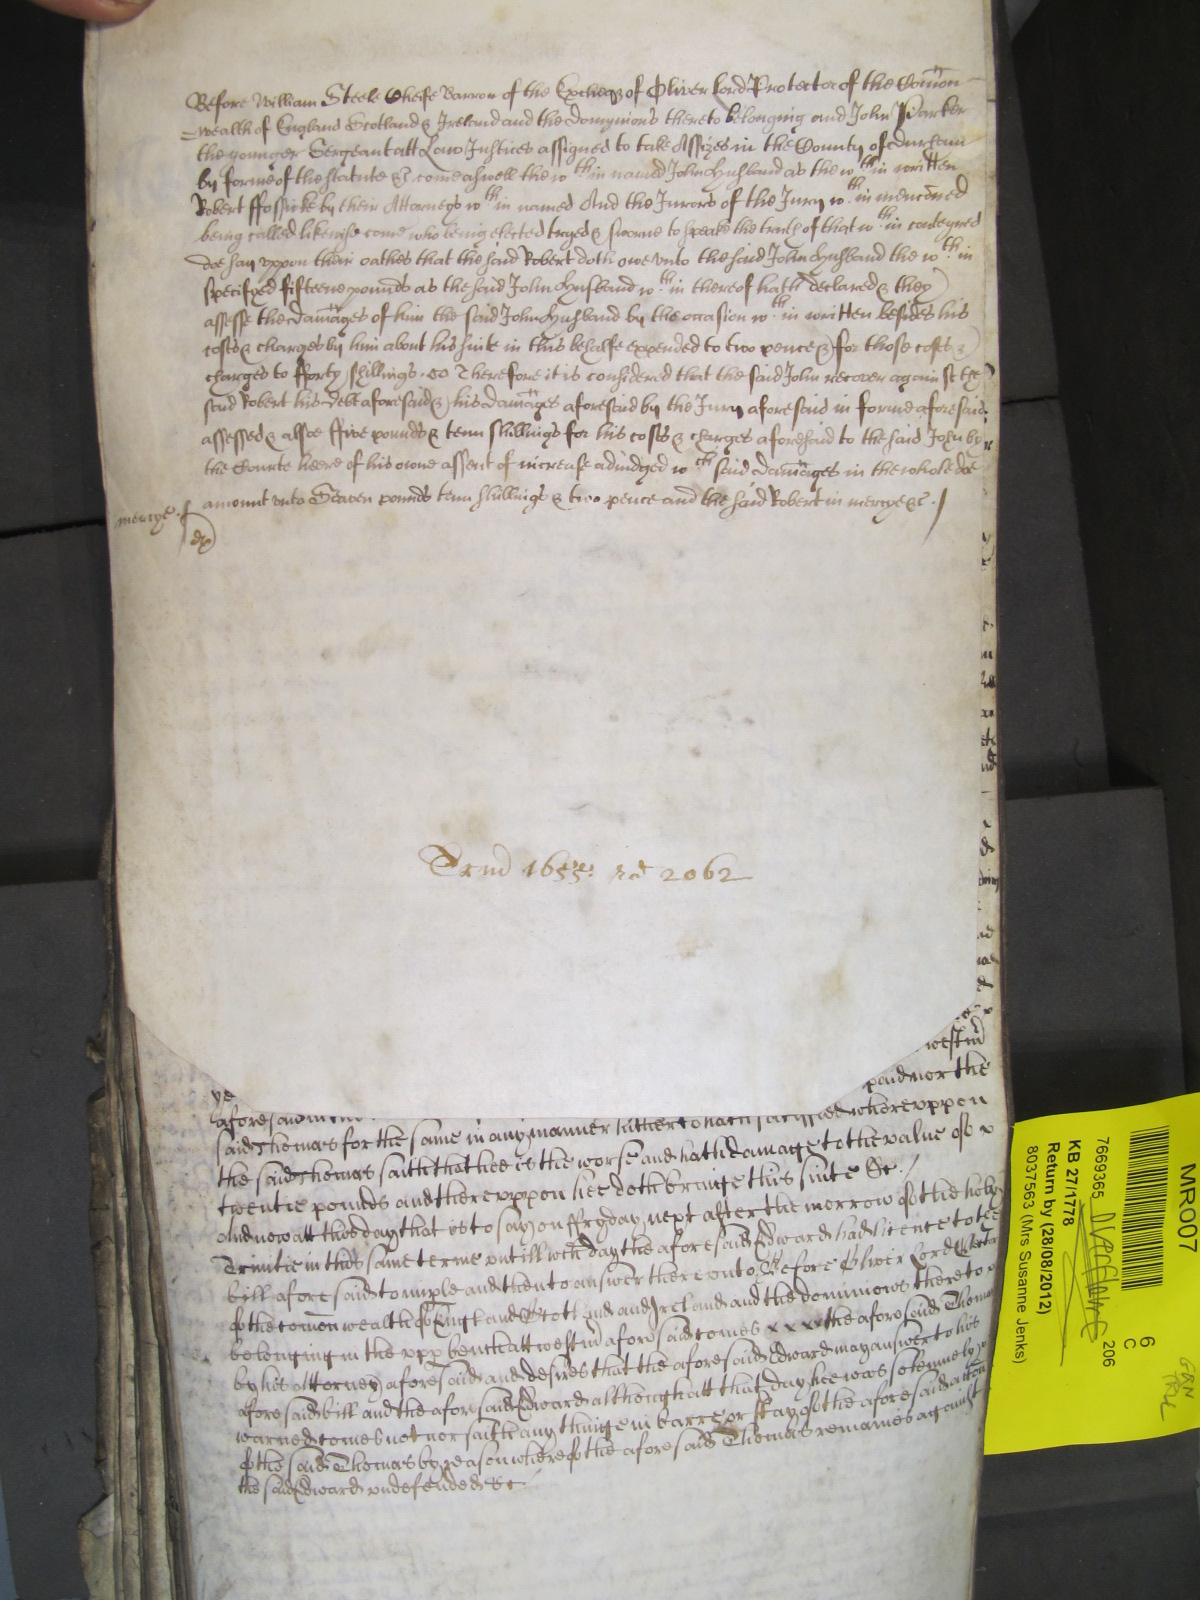 Before William Steele Cheife Barron of the Excheqr of Oliver Lord Protector of the Com̄on
=wealth of England Scotland & Ireland and the Dominions thereto belonging and John Parker
the younger Sergeant att Law Justices assigned to take Assizes in the County of Durham
by forme of the statute &c come aswell the wthin named John Husband as the wthin written
Robert ffossicke by their Attorneys wthin named And the Jurors of the Jury wthin menc̄oned
being called likewise come who being elected tryed & sworne to speake the truth of that wthin conteyned
doe say vppon their oathes that the said Robert doth owe vnto the said John Husband the wthin
specifyed fifteene pounds as the said John Husband wthin thereof hath declared & they
assesse the dam̄ages of him the said John Husband by the occasion wthin written besides his
costs & charges by him about his suite in this behalfe expended to two pence & for those costs &
charges to fforty shillings. Therefore it is considered that the said John recover against the
said Robert his debt aforesaid & his dam̄ages aforesaid by the Jury aforesaid in forme aforesaid
assessed & alsoe ffive pounds & tenn shillings for his costs & charges aforesaid to the said John by
the Courte heere of his owne assent of increase adiudged wch said dam̄ages in the whole doe
amount vnto Seaven pounds tenn shillings & two pence and the said Robert in mercye &c.
mercye.
Trin 1655: 2062
westm
ye
paid nor the
aforesaid
said Thomas for the same in any manner hitherto hath satisfied wherevppon
the said Thomas saith that hee is the worse and hath damage to the value of
twentie pounds and therevppon hee doth bringe this suite &c.
And now att this day that is to say on ffryday next after the morrow of the holy
Trinitie in this same terme vntill wch day the aforesaid Edward had licence to the
bill aforesaid to imple and then to answer therevnto &c Before Oliver Lord
of the com̄onwealth of England Scotland and Ireland and the dominions thereto
belonging in the vpp bench att westm̄ aforesaid comes x x x x the aforesaid Thomas
by his attorney aforesaid and desires that the aforesaid Edward may answer to his
aforesaid bill and the aforesaid Edward although att that day hee was solemnely
warned comes not nor saith any thinge in barre or stay of the aforesaid action
of the said Thomas by reason whereof the aforesaid Thomas remaines against
the said Edward vndefended &c
MR007
6
C
7669365
206
KB 27/1778
Return by (28/08/2012)
8037563 (Mrs Susanne Jenks)